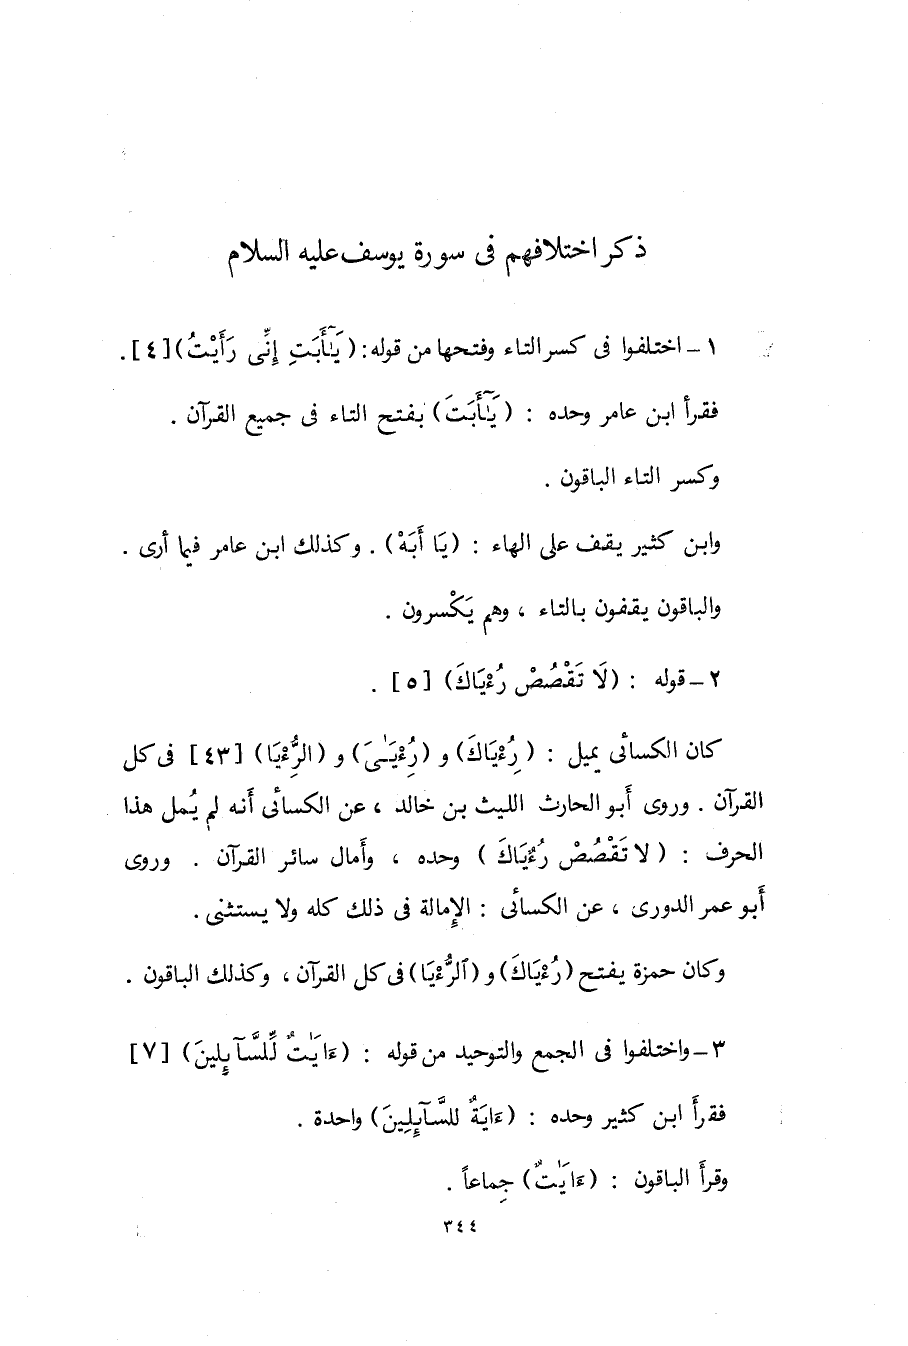 ذكر اختلافهم فى سورة يوسف عليه السلام
١ ــ اختلفوا فى كسر التاء وفتحها من قوله : ( يَـٰٓأَبَتِ إِنِّى رَأَيْتُ ) [ ٤ ] .
فقرأ ابن عامر وحده : ( يَـٰٓأَبَتَ ) بفتح التاء فى جميع القرآن .
وكسر التاء الباقون .
وابن كثير يقف على الهاء : ( يَا أَبَهْ ) . وكذلك ابن عامر فيما أرى .
والباقون يقفون بالتاء ، وهم يَكْسرون .
٢ ــ قوله : ( لَا تَقْصُصْ رُءْيَاكَ ) [ ٥ ] .
كان الكسائى يميل : ( رُءْيَاكَ ) و ( رُءْيَـٰىَ ) و ( الرُّءْيَا ) [ ٤٣ ] فى كل
القرآن . وروى أَبو الحارث الليث بن خالد ، عن الكسائى أنه لم يُمل هذا
الحرف : ( لا تَقْصُصْ رُءْيَاكَ ) وحده ، وأَمال سائر القرآن . وروى
أَبو عمر الدورى ، عن الكسائى : الإمالة فى ذلك كله ولا يستثنى .
وكان حمزة يفتح ( رُءْيَاكَ ) و ( ٱلرُّءْيَا ) فى كل القرآن ، وكذلك الباقون .
٣ ــ واختلفوا فى الجمع والتوحيد من قوله : ( ءَايَـٰتٌ لِّلسَّآئِلِينَ ) [ ٧ ]
فقرأَ ابن كثير وحده : ( ءَايَةٌ للسَّآئِلِينَ ) واحدة .
وقرأَ الباقون : ( ءَايَـٰتٌ ) جِماعاً .
٣٤٤